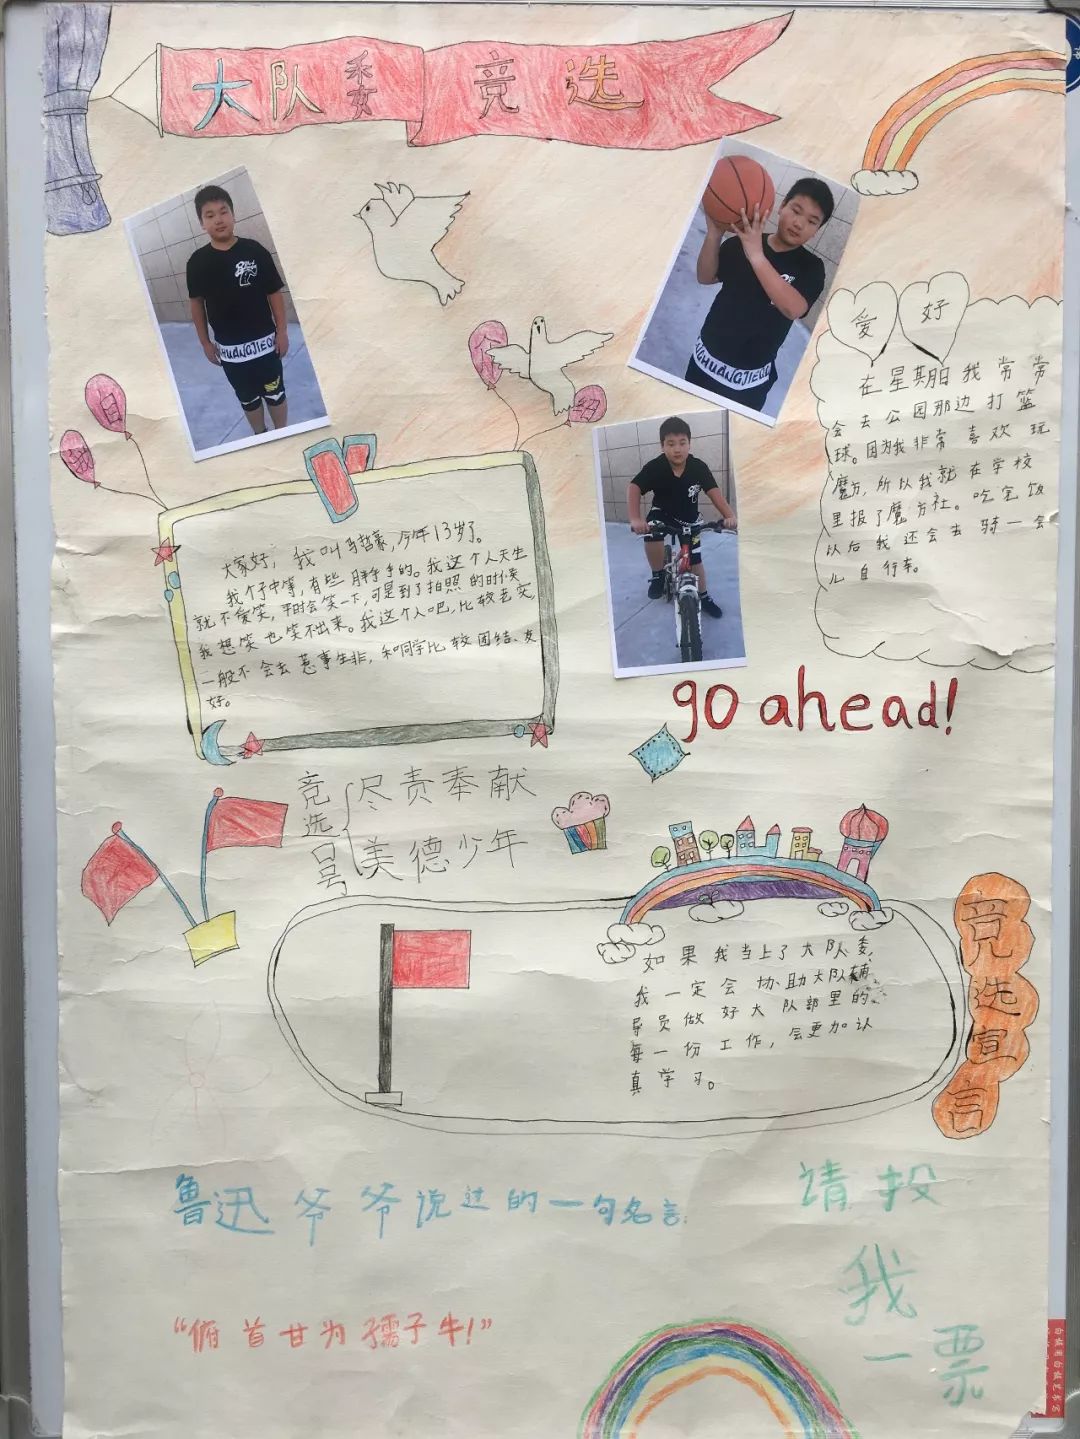 大队委 竞选
自我介绍
大家好，我叫马哲豪，今年13岁了。
我个子中等，有些胖乎乎的。我这个人天生
就不爱笑，平时会笑一下，可是到了拍照的时候
我想笑也笑不出来。我这个人吧，比较老实，
一般不会去惹事生非，和同学比较团结、友
好。
爱好
在星期日我常常
会去公园那边打篮
球。因为我非常喜欢玩
魔方，所以我就在学校
里报了魔方社。吃完饭
以后我还会去骑一会
儿自行车。
go ahead!
竞选口号
尽责奉献
美德少年
竞选宣言
如果我当上了大队委，
我一定会协助大队辅
导员做好大队部里的
每一份工作，会更加认
真学习。
鲁迅爷爷说过的一句名言：
“俯首甘为孺子牛！”
请投
我
一票